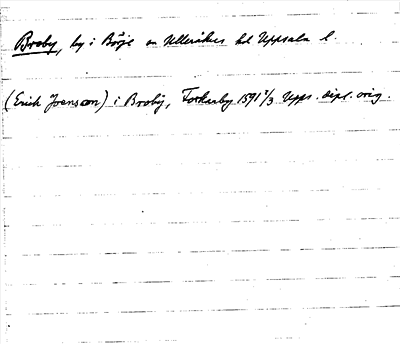 Broby, by i Börje sn Ulleråkers hd Uppsala l.
(Erich Joensson) i Broby, Forkarby 1591 1/3 Upps. dipl. orig.